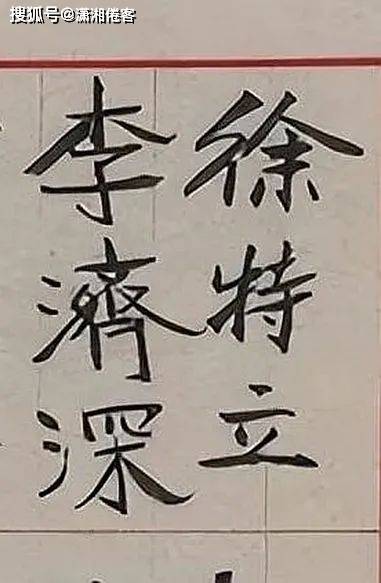 搜狐号@潇湘倦客
徐特立
李濟深